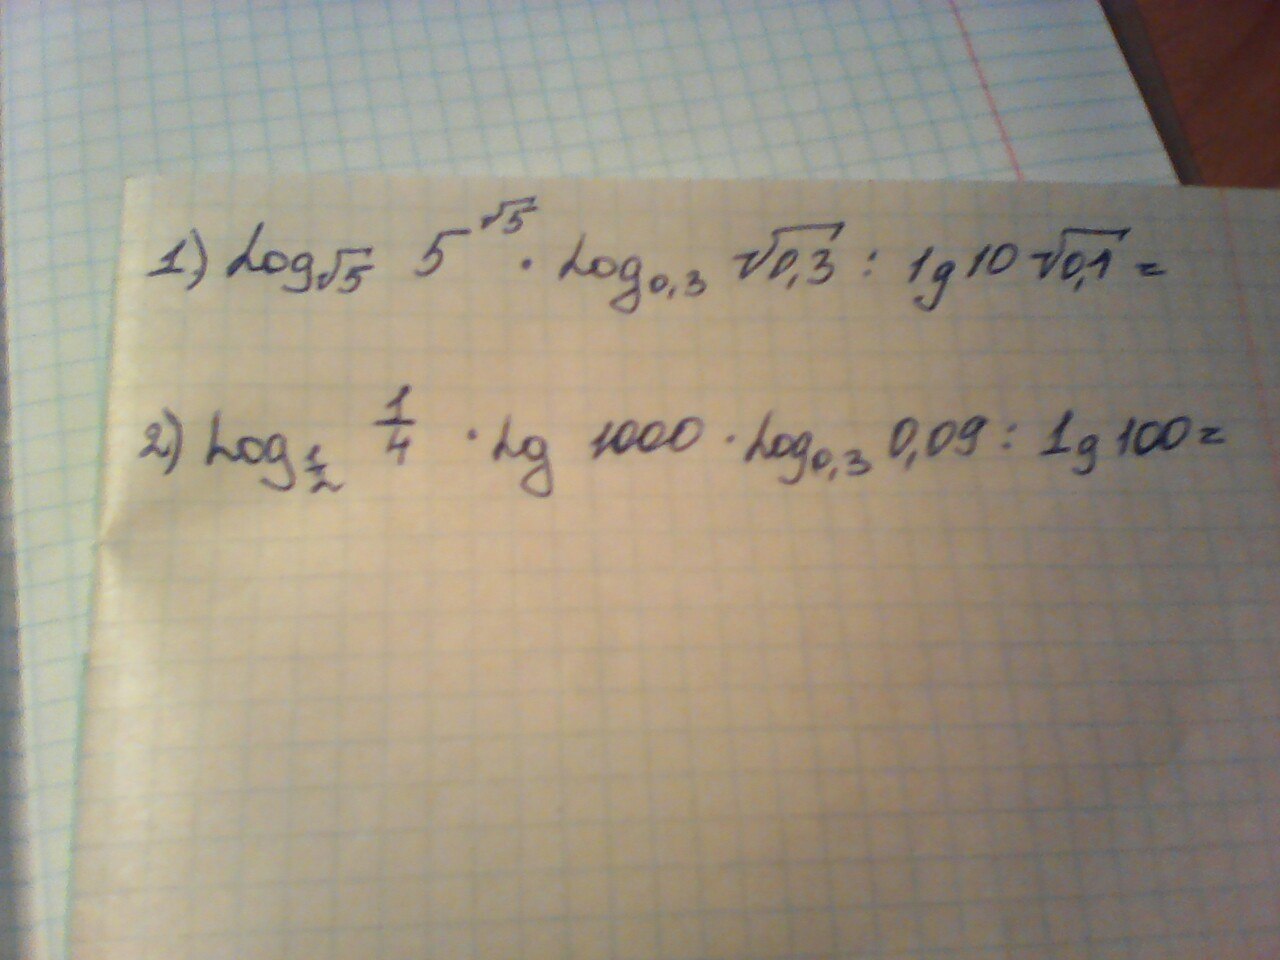 1) Log√5 5^√5 · Log0,3 √0,3 : lg10√0,1 =
2) Log1/2 1/4 · Lg 1000 · Log0,3 0,09 : lg100 =